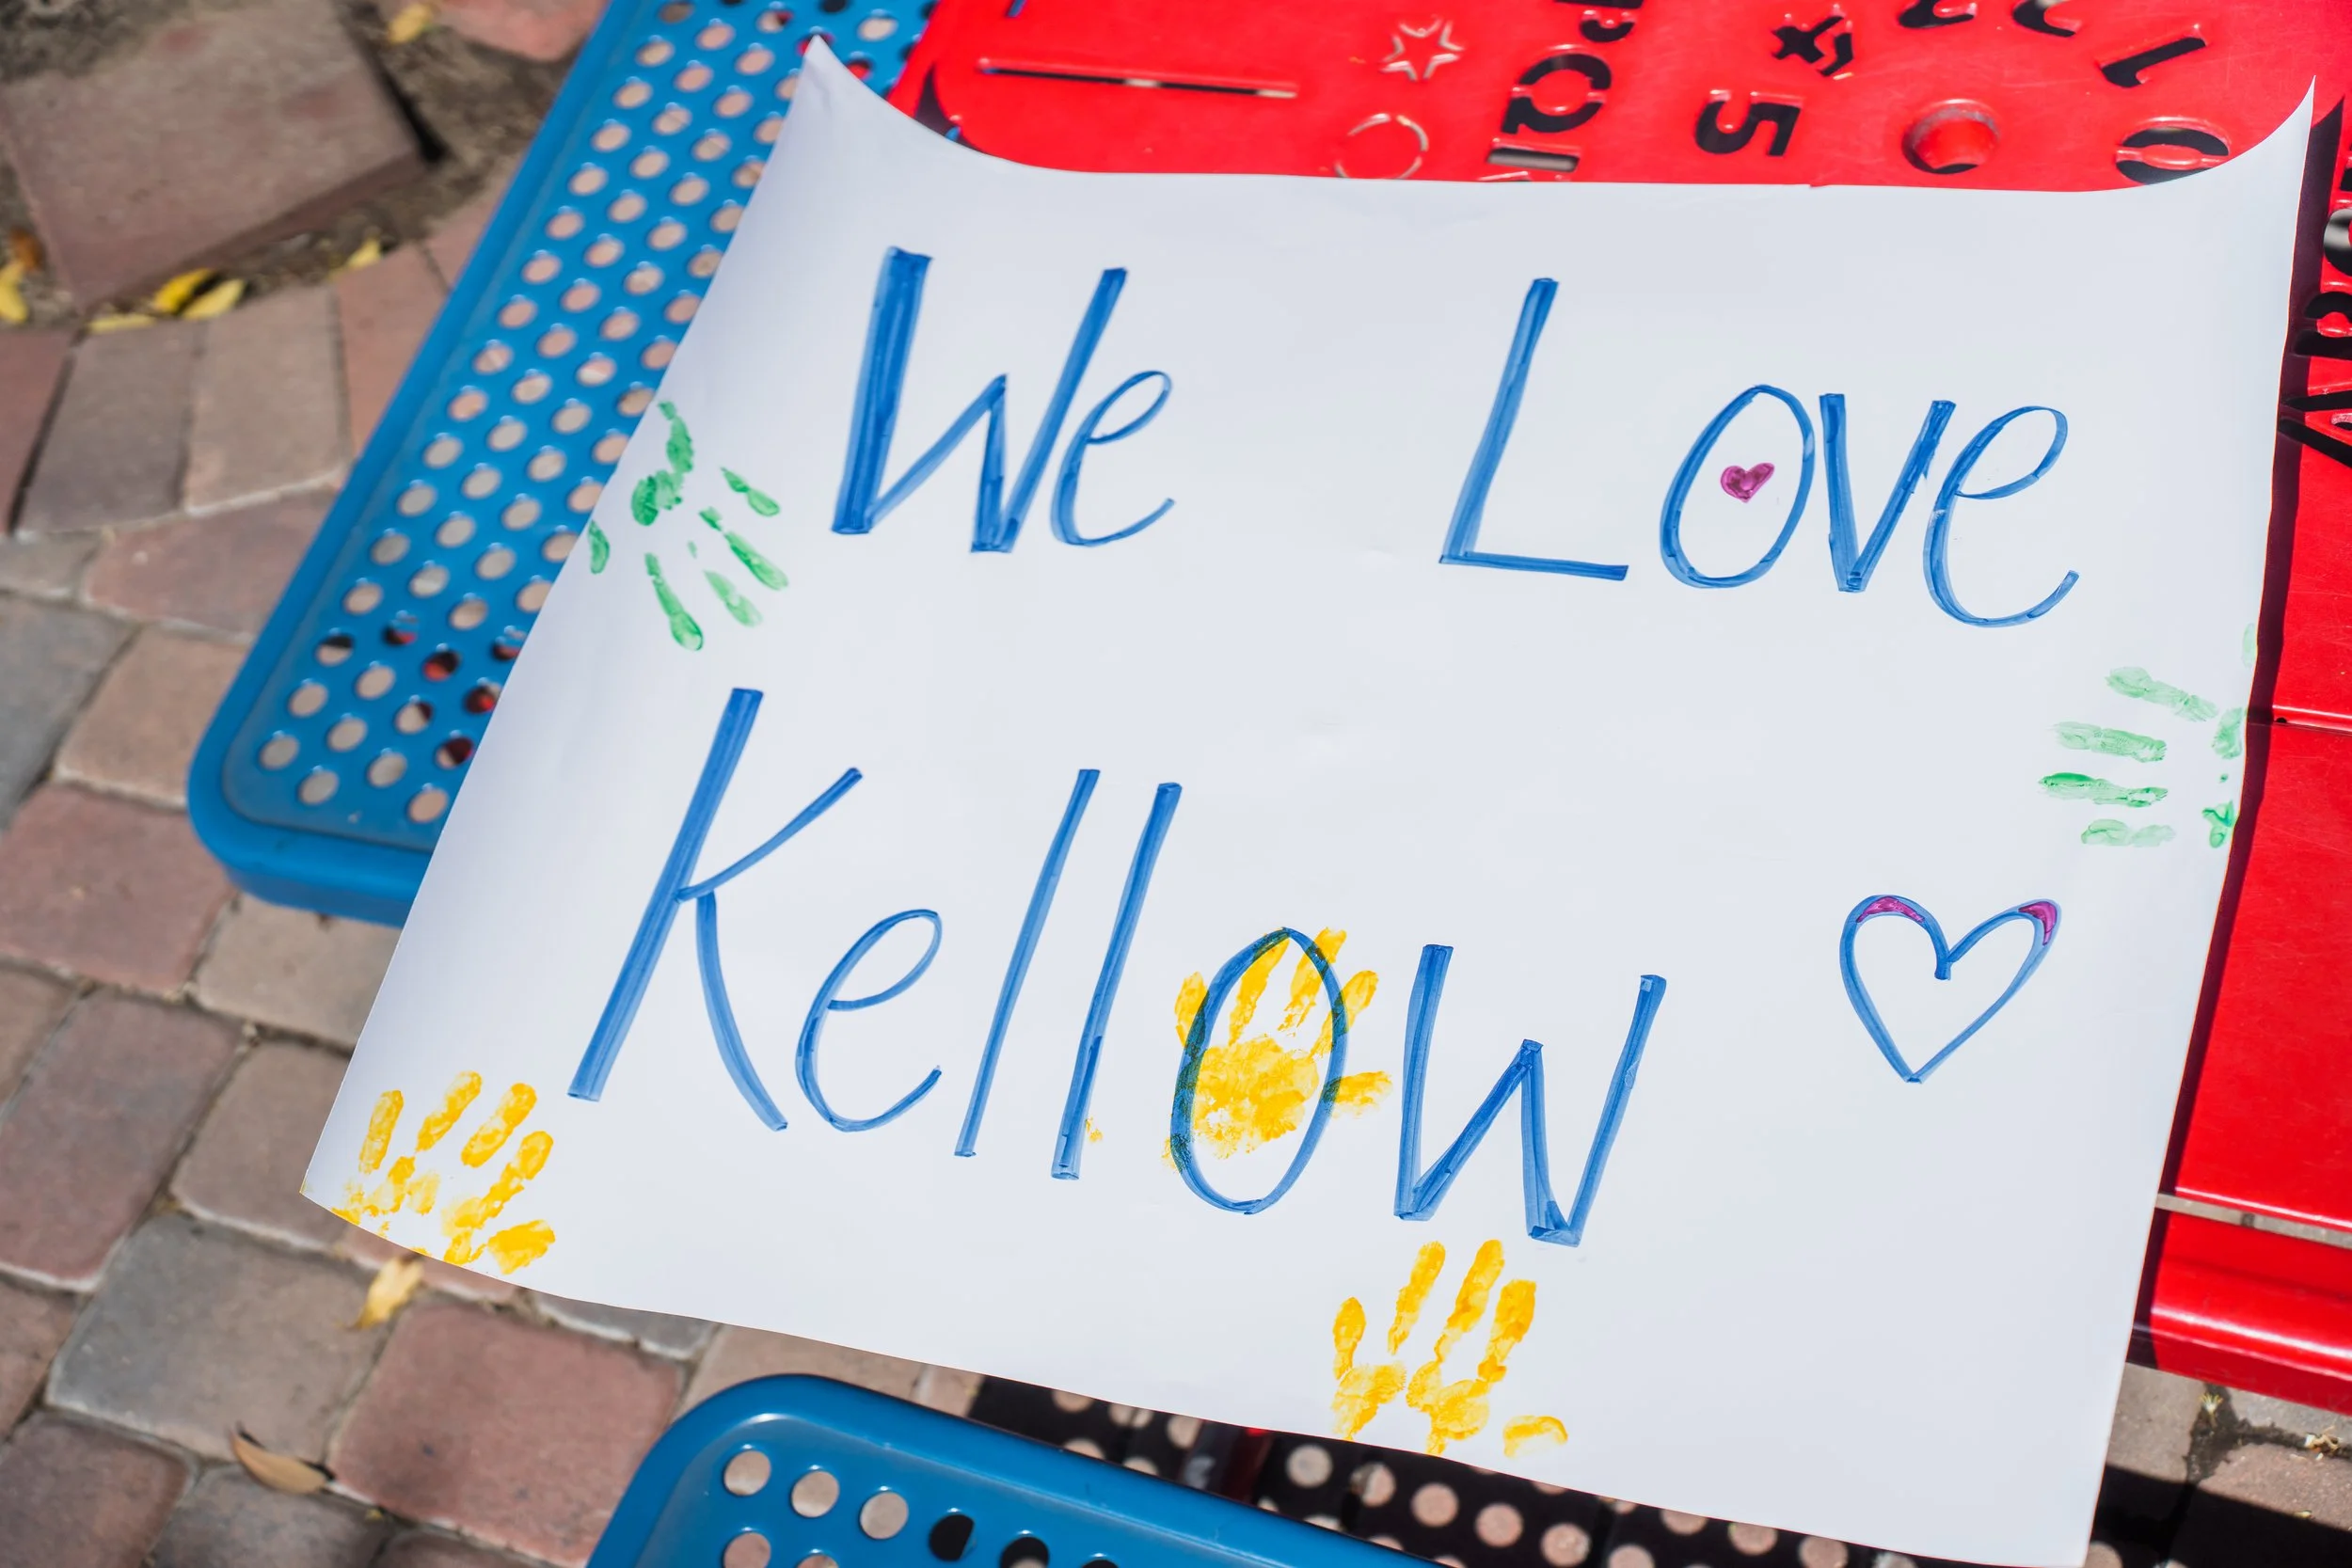 We Love
Kellow
5